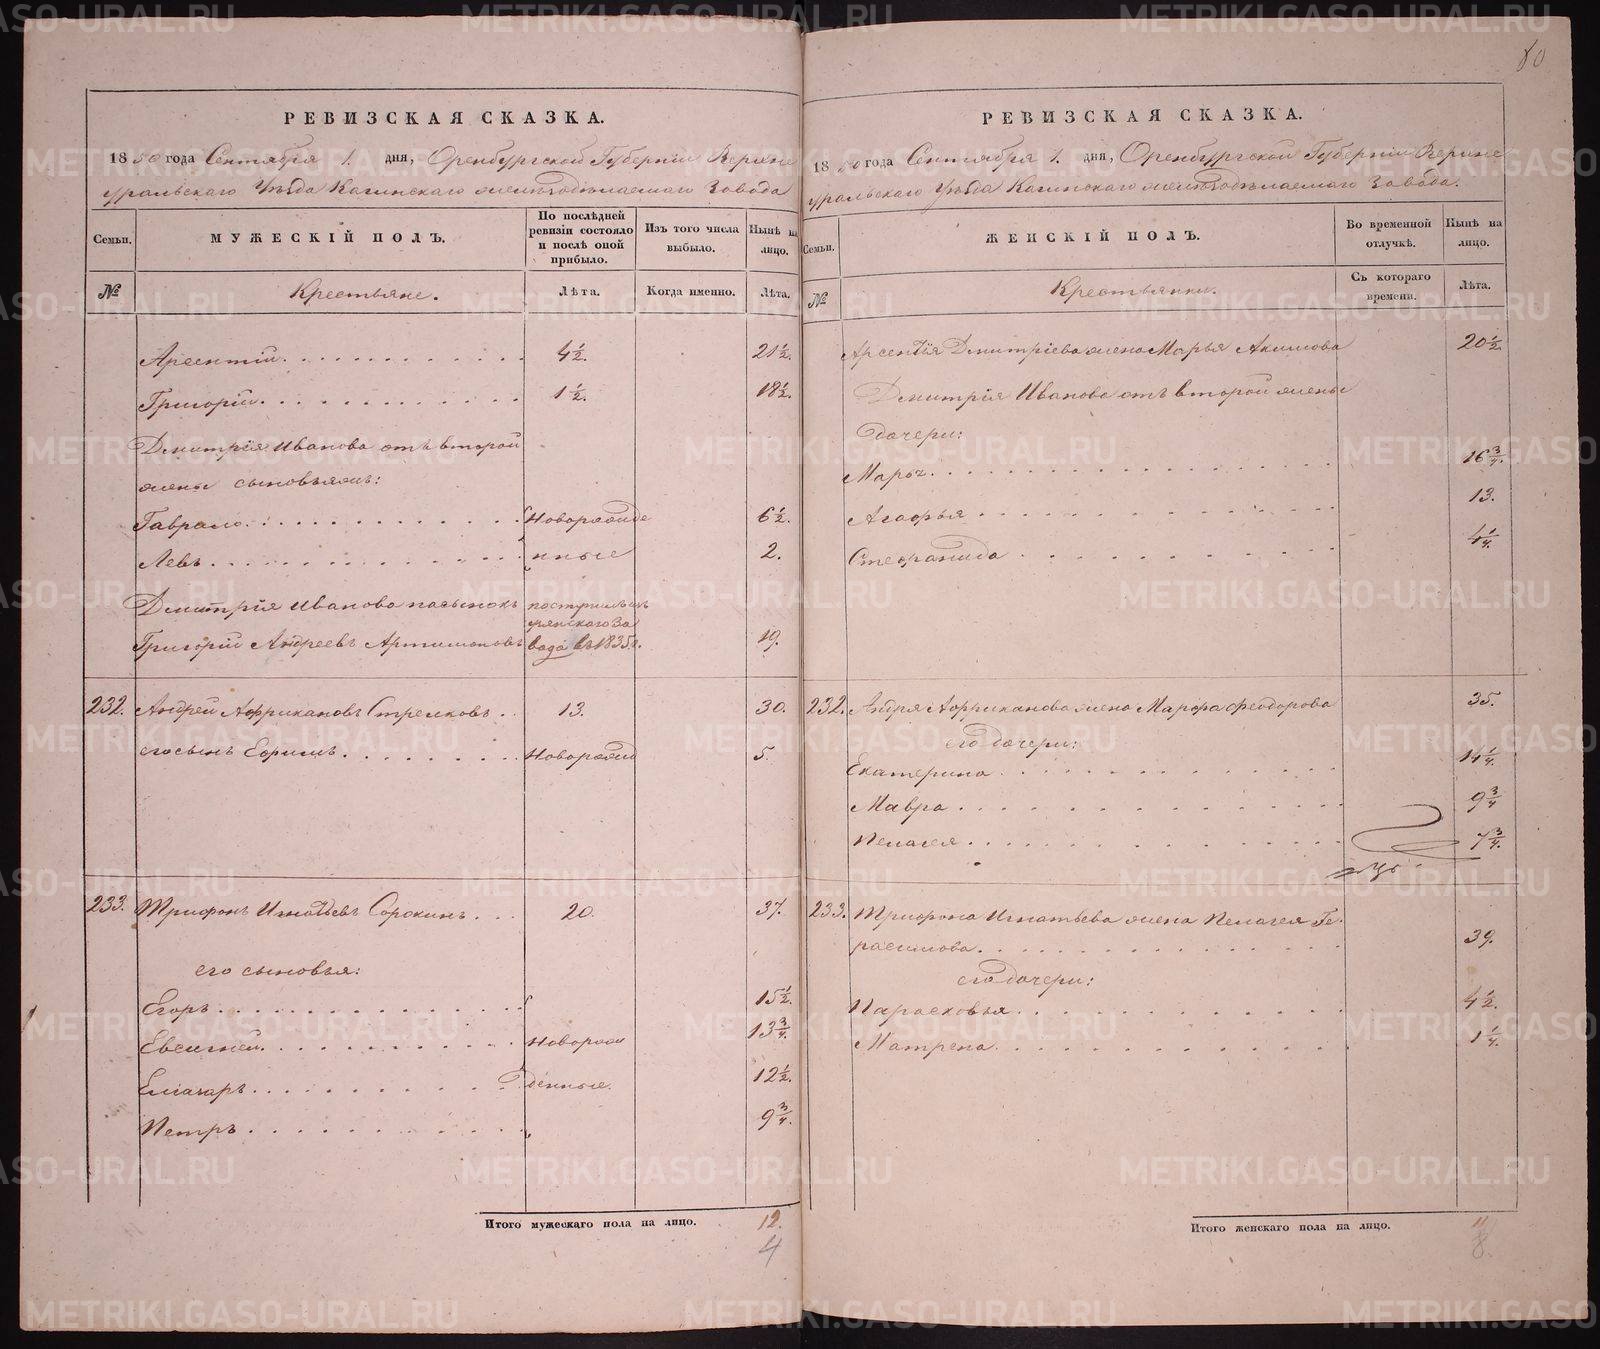 80
РЕВИЗСКАЯ СКАЗКА.
1850 года Сентября 1. дня, Оренбургской Губернiи Верхне
уральскаго Уѣзда Кагинскаго желѣзодѣлаемаго Завода
Семьи.
МУЖЕСКIЙ ПОЛЪ.
По послѣдней ревизiи состояло и послѣ оной прибыло.
Изъ того числа выбыло.
Нынѣ на лицо.
№
Крестьяне.
Лѣта.
Когда именно.
Лѣта.
Арсентiй. 4½. 21½.
Григорiй. 1½. 18½.
Дмитрiя Иванова отъ второй
жены сыновьямъ:
Гаврало. Новорожде 6½.
Левъ. нные 2.
Дмитрiя Иванова пасынокъ поступилъ изъ
Григорiй Андреевъ Артимоновъ вода въ 1835 г. 19.
232. Андрей Африкановъ Стрелковъ. 13. 30.
его сынъ Ефримъ. Новорожд 5.
233. Трифонъ Игнатьевъ Сорокинъ. 20. 37.
его сыновья:
Егоръ. 15½.
Евсигней. Новорож 13¾.
Елизаръ. денные. 12½.
Петръ. 9¾.
Итого мужескаго пола на лицо. 12.
4
РЕВИЗСКАЯ СКАЗКА.
1850 года Сентября 1. дня, Оренбургской Губернiи Верхне
уральскаго Уѣзда Кагинскаго желѣзодѣлаемаго Завода.
Семьи.
ЖЕНСКIЙ ПОЛЪ.
Во временной отлучкѣ.
Нынѣ на лицо.
№
Крестьянки.
Съ котораго времени.
Лѣта.
Арсентiя Дмитрiева жена Марья Акимова 20½.
Дмитрiя Иванова отъ второй жены
дочери:
Марья. 16¾.
Агафья 13.
Стефанида 4¼.
232. Андрея Африканова жена Марфа Феодорова 35.
его дочери:
Екатерина. 14¼.
Мавра. 9¾
Пелагея. 7¾.
233. Трифона Игнатьева жена Пелагея Ге-
расимова. 39.
его дочери:
Парасковья. 4½.
Матрена. 1¼.
Итого женскаго пола на лицо. 11
8.
METRIKI.GASO-URAL.RU